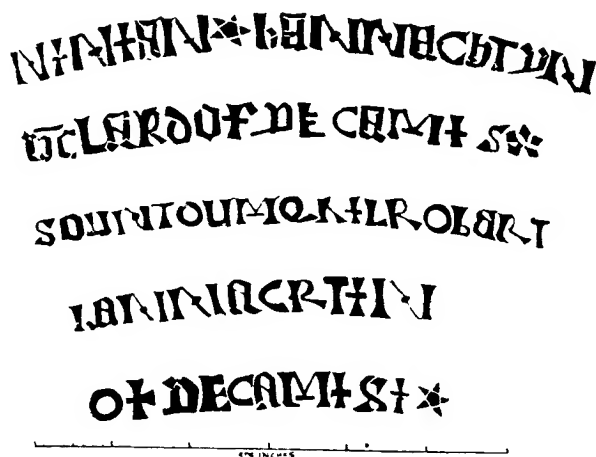 NINIAN ★ BANNACHTYN
LARD OF DE CAMIS ★
SOUN TO UMQHIL ROBART
BANNACHTIN
OF DE CAMIS ★
INCHES